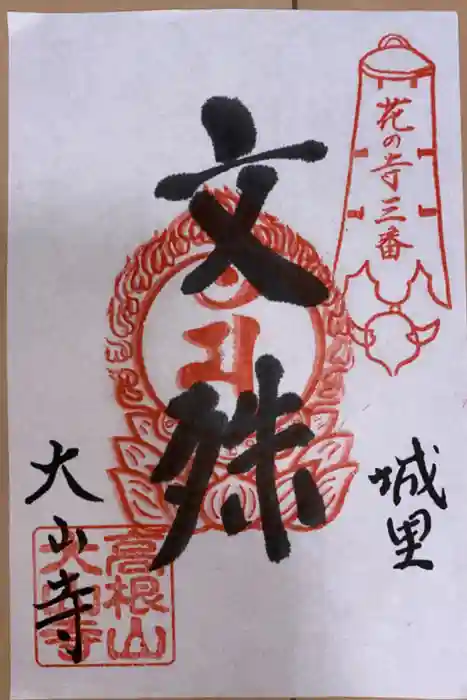 花の寺三番
城里
文殊
大山寺
高根山
大山寺